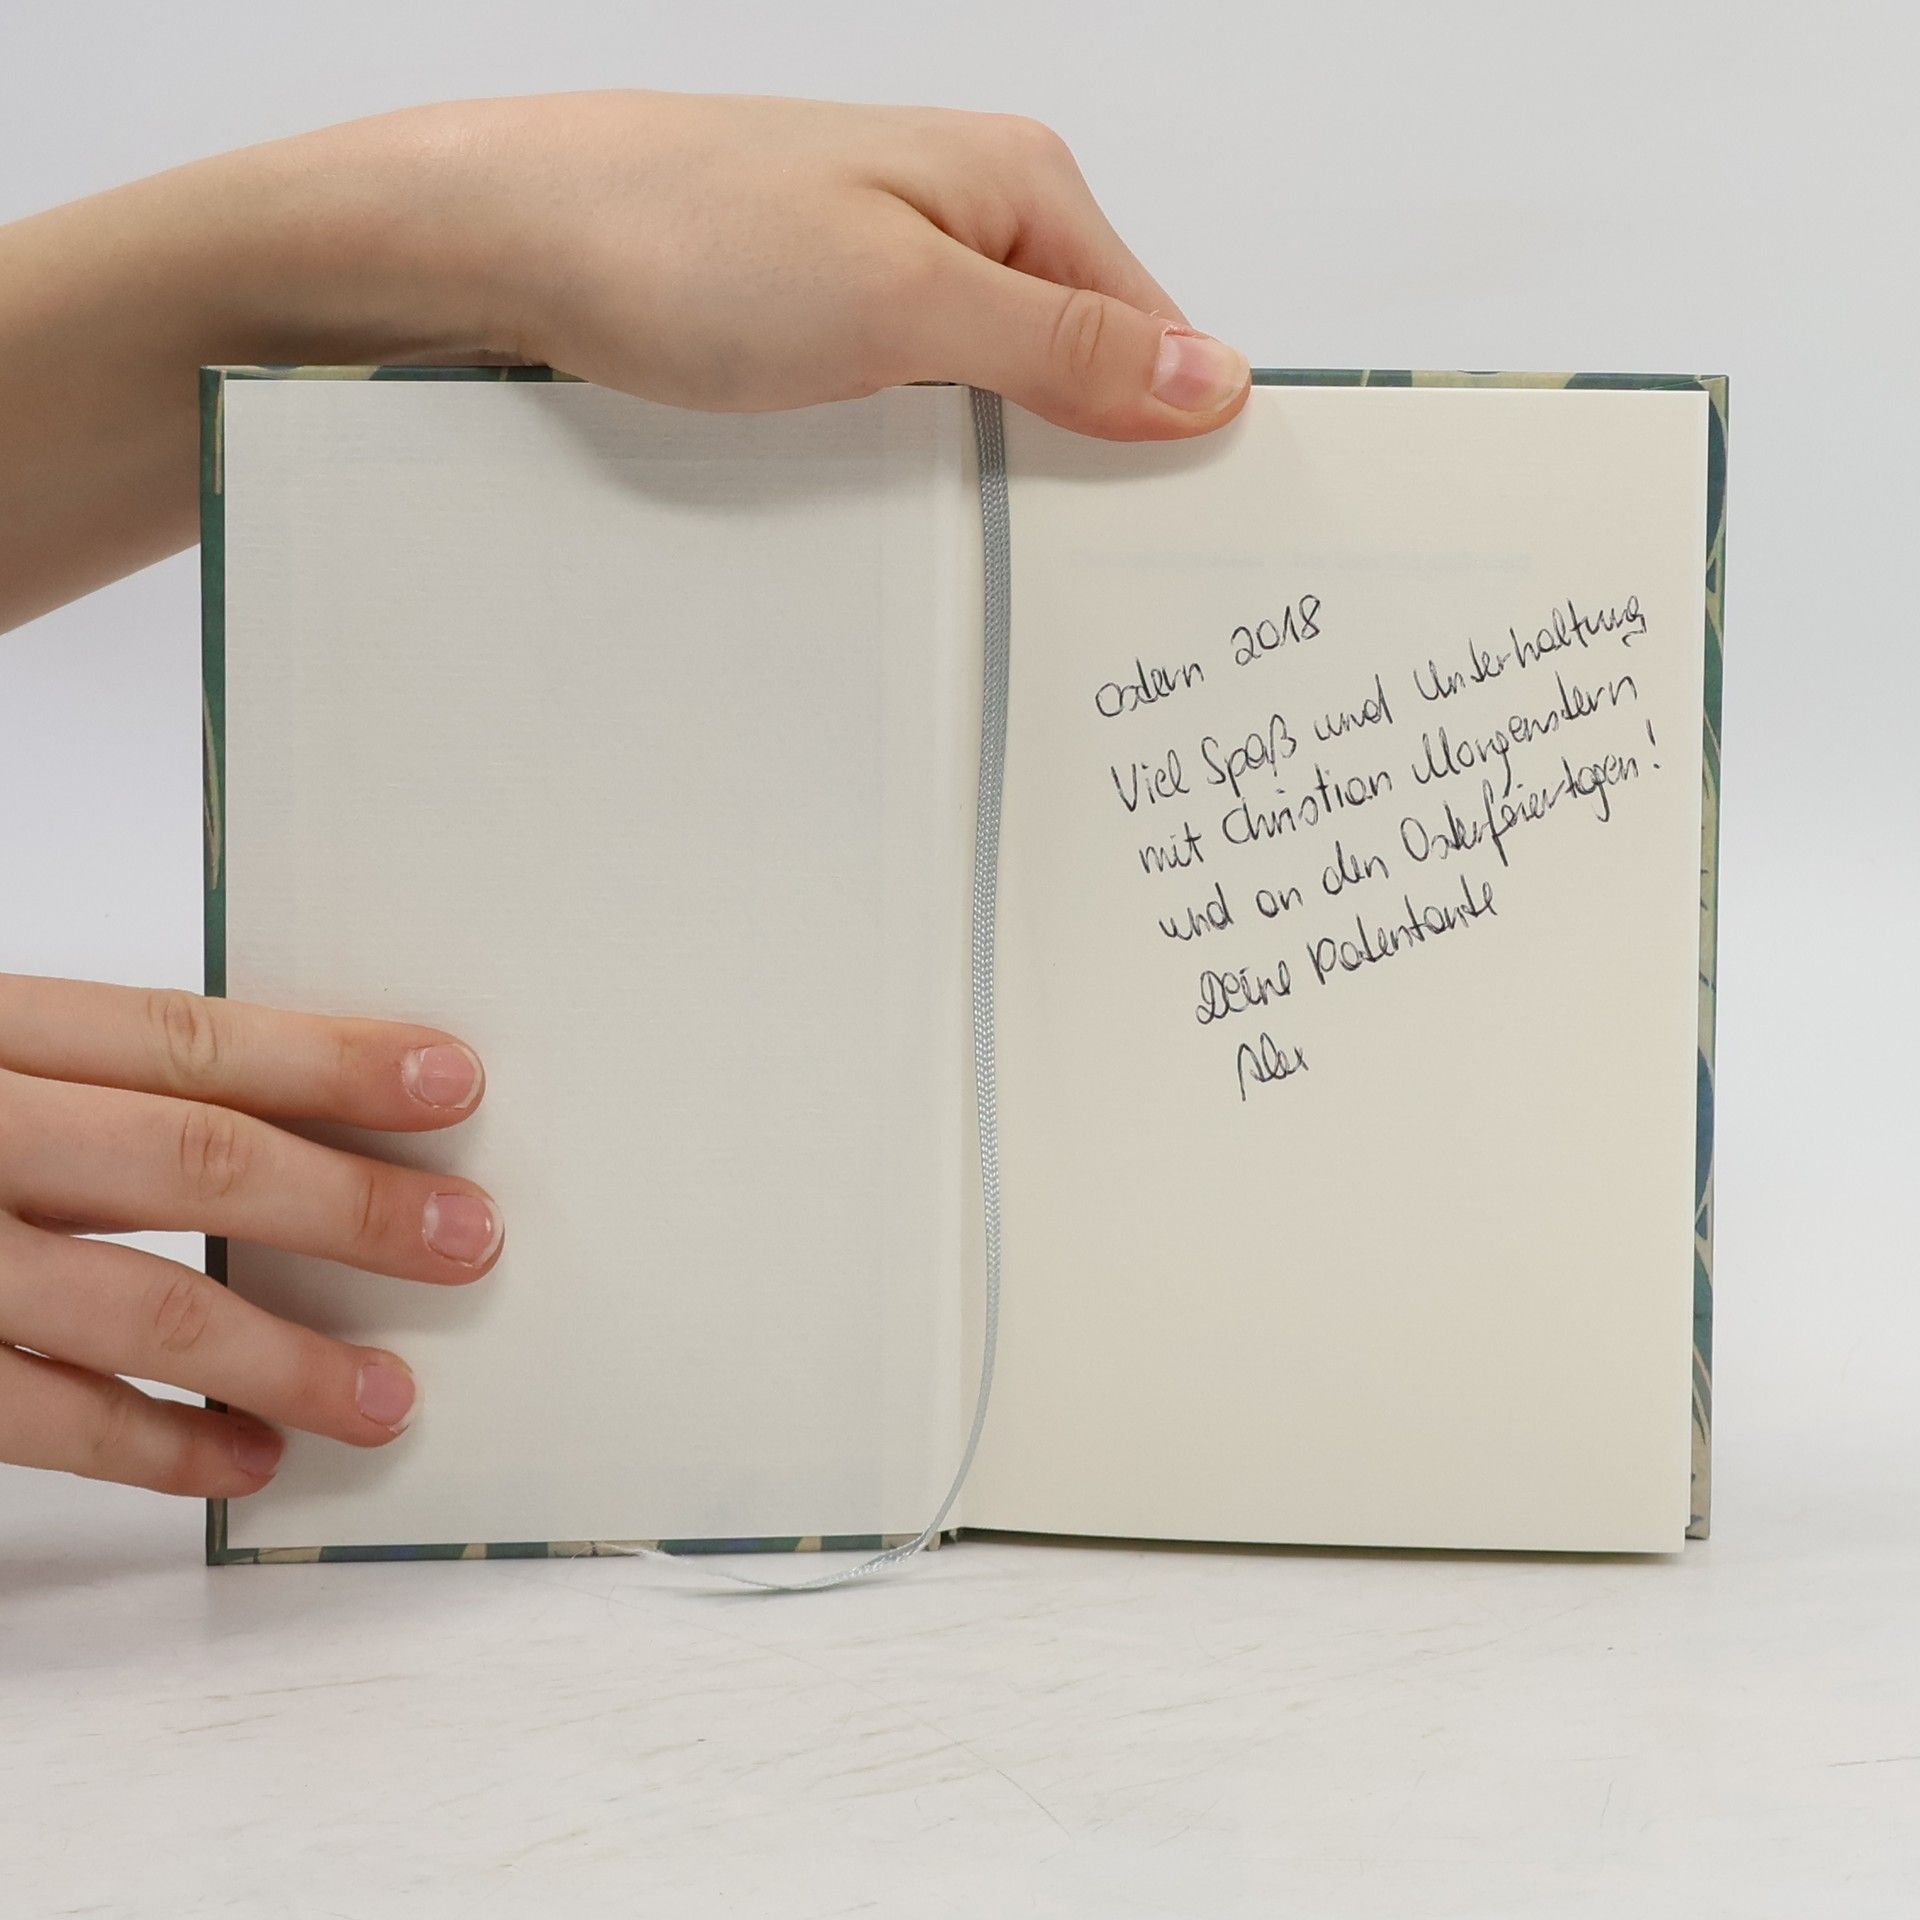 Ostern 2018
Viel Spaß und Unterhaltung
mit Christian Morgenstern
und an den Osterfeiertagen!
Deine Patentante
Alex